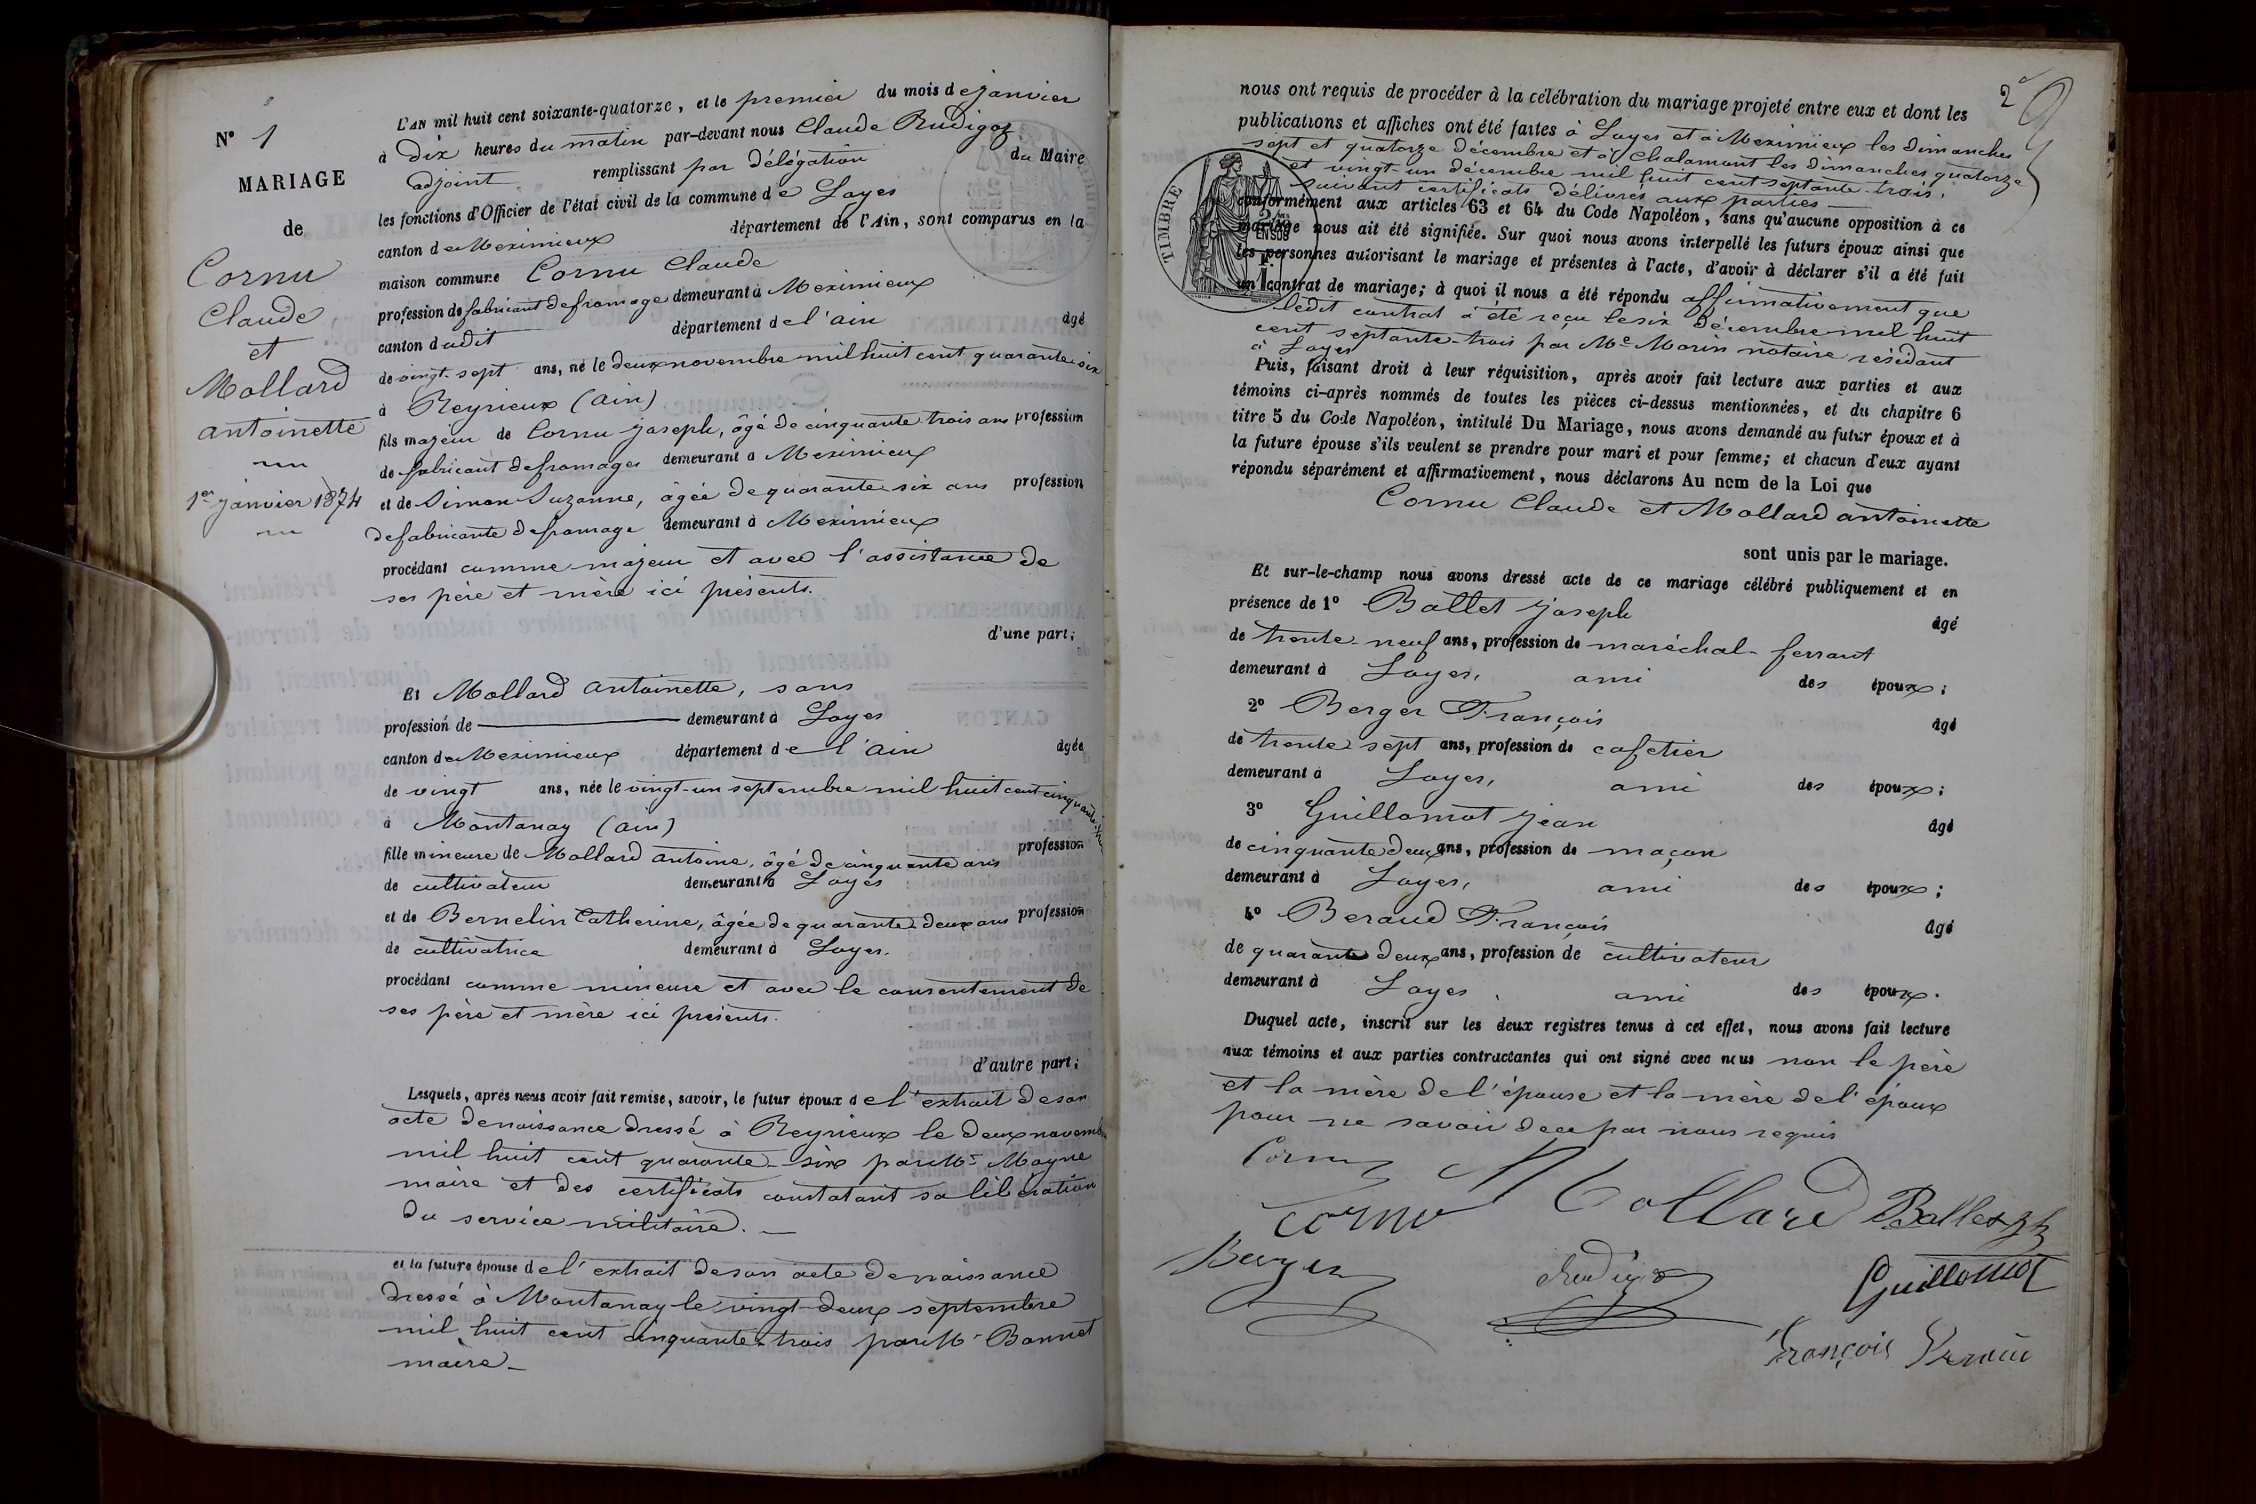 N° 1
MARIAGE
de
Cornu
Claude
et
Mollard
antoinette
1er janvier 1874
L'AN mil huit cent soixante-quatorze, et le premier du mois de janvier
à dix heures du matin par-devant nous Claude Rudigoz
adjoint remplissant par délégation du Maire
les fonctions d'Officier de l'état civil de la commune de Loyes
canton de Meximieux département de l'Ain, sont comparus en la
maison commune Cornu Claude
profession de fabricant de fromage demeurant à Meximieux
canton dudit département de l'ain âgé
de vingt-sept ans, né le deux novembre mil huit cent quarante-six
à Reyrieux (ain)
fils majeur de Cornu Joseph, âgé de cinquante trois ans profession
de fabricant de fromages demeurant à Meximieux
et de Simon Suzanne, âgée de quarante-six ans profession
de fabricante de fromage demeurant à Meximieux
procédant comme majeur et avec l'assistance de
ses père et mère ici présents.
d'une part;
Et Mollard Antoinette, sans
profession de demeurant à Loyes
canton de Meximieux département de l'ain âgée
de vingt ans, née le vingt-un septembre mil huit cent cinquante-trois
à Montanay (ain)
fille mineure de Mollard antoine, âgé de cinquante ans profession
de cultivateur demeurant à Loyes
et de Bernelin Catherine, âgée de quarante-deux ans profession
de cultivatrice demeurant à Loyes.
procédant comme mineure et avec le consentement de
ses père et mère ici présents.
d'autre part;
Lesquels, après nous avoir fait remise, savoir, le futur époux de l'extrait de son
acte de naissance dressé à Reyrieux le deux novembre
mil huit cent quarante-six par Mr Mayne
maire et des certificats constatant sa libération
du service militaire.
et la future épouse de l'extrait de son acte de naissance
dressé à Montanay le vingt-deux septembre
mil huit cent cinquante-trois par Mr Bonnet
maire
2
nous ont requis de procéder à la célébration du mariage projeté entre eux et dont les
publications et affiches ont été faites à Loyes et à Meximieux les dimanches
sept et quatorze décembre et à Chalamont les dimanches quatorze
et vingt-un décembre mil huit cent septante-trois,
suivant certificats délivrés aux parties
conformément aux articles 63 et 64 du Code Napoléon, sans qu'aucune opposition à ce
mariage nous ait été signifiée. Sur quoi nous avons interpellé les futurs époux ainsi que
les personnes autorisant le mariage et présentes à l'acte, d'avoir à déclarer s'il a été fait
un contrat de mariage; à quoi il nous a été répondu affirmativement que
ledit contrat a été reçu le six décembre mil huit
cent septante-trois par Me Morin notaire résidant
à Loyes
TIMBRE
EN SUS
Puis, faisant droit à leur réquisition, après avoir fait lecture aux parties et aux
témoins ci-après nommés de toutes les pièces ci-dessus mentionnées, et du chapitre 6
titre 5 du Code Napoléon, intitulé Du Mariage, nous avons demandé au futur époux et à
la future épouse s'ils veulent se prendre pour mari et pour femme; et chacun d'eux ayant
répondu séparément et affirmativement, nous déclarons Au nom de la Loi que
Cornu Claude et Mollard antoinette
sont unis par le mariage.
Et sur-le-champ nous avons dressé acte de ce mariage célébré publiquement et en
présence de 1° Ballet Joseph âgé
de trente-neuf ans, profession de maréchal-ferrant
demeurant à Loyes, ami des époux;
2° Berger François âgé
de trente sept ans, profession de cafetier
demeurant à Loyes, ami des époux;
3° Guillomot Jean âgé
de cinquante deux ans, profession de maçon
demeurant à Loyes, ami des époux;
4° Beraud François âgé
de quarante deux ans, profession de cultivateur
demeurant à Loyes, ami des époux.
Duquel acte, inscrit sur les deux registres tenus à cet effet, nous avons fait lecture
aux témoins et aux parties contractantes qui ont signé avec nous non le père
et la mère de l'épouse et la mère de l'époux
pour ne savoir de ce par nous requis
Cornu
Cornu Mollard Ballet
Berger Rudigoz Guillomot
François